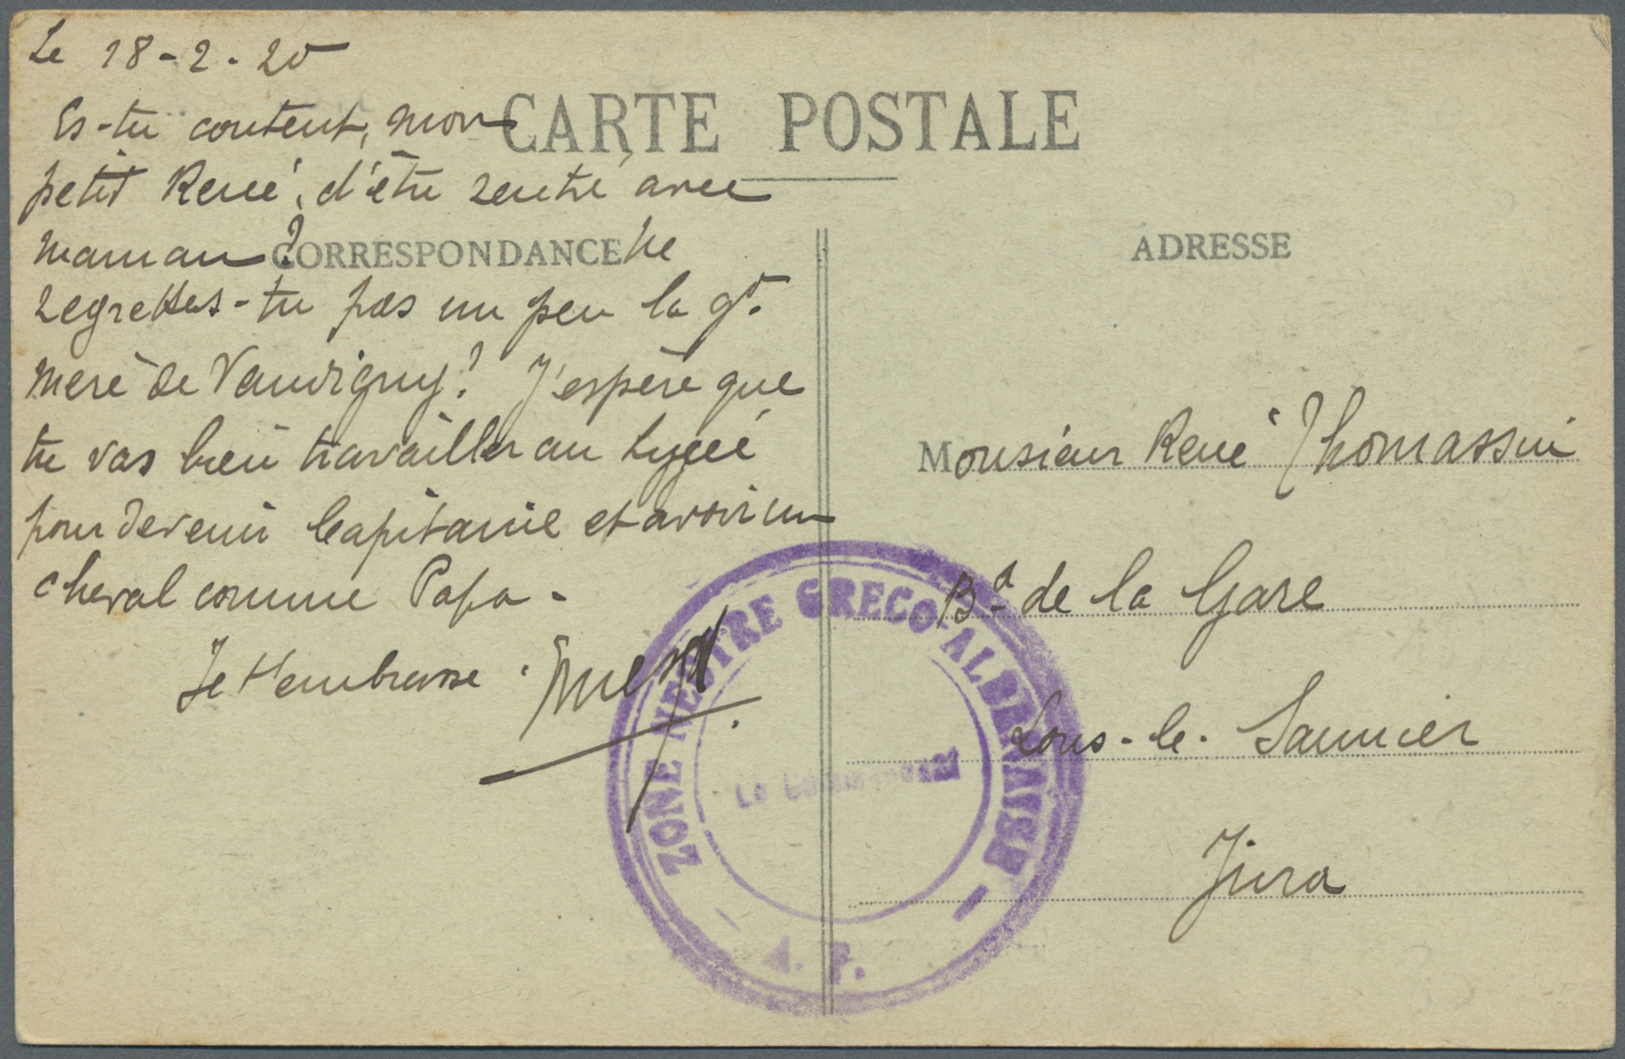 Le 18-2-20
Es-tu content, mon
CARTE POSTALE
petit René, d'être rentré avec
maman? Ne
CORRESPONDANCE
regrettes-tu pas un peu la gd.
mère de Vauvigny? J'espère que
tu vas bien travailler au Lycée
pour devenir Capitaine et avoir un
cheval comme Papa -
Je t'embrasse.
ADRESSE
Monsieur René Thomassin
Bd de la Gare
Lons-le-Saunier
Jura
ZONE NEUTRE GRECO-ALBANAISE
Le Commandant